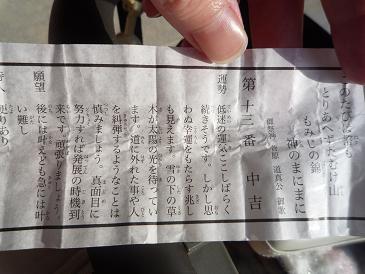 このたびは幣も
とりあへず手むけ山
もみじの錦
神のまにまに
御祭神 菅原道真公 御歌
第十三番 中吉
運勢 低迷の運気ここしばらく
続きそうです。しかし思
わぬ幸運をもたらす兆し
も見えます。雪の下の草
木が太陽の光を待ってい
ます。道に外れた事や人
を糾弾するようなことは
慎みましょう。真面目に
努力すれば発展の時機到
来です。頑張りましょう。
願望 後には叶えども急には叶
い難し
待人 便りあり